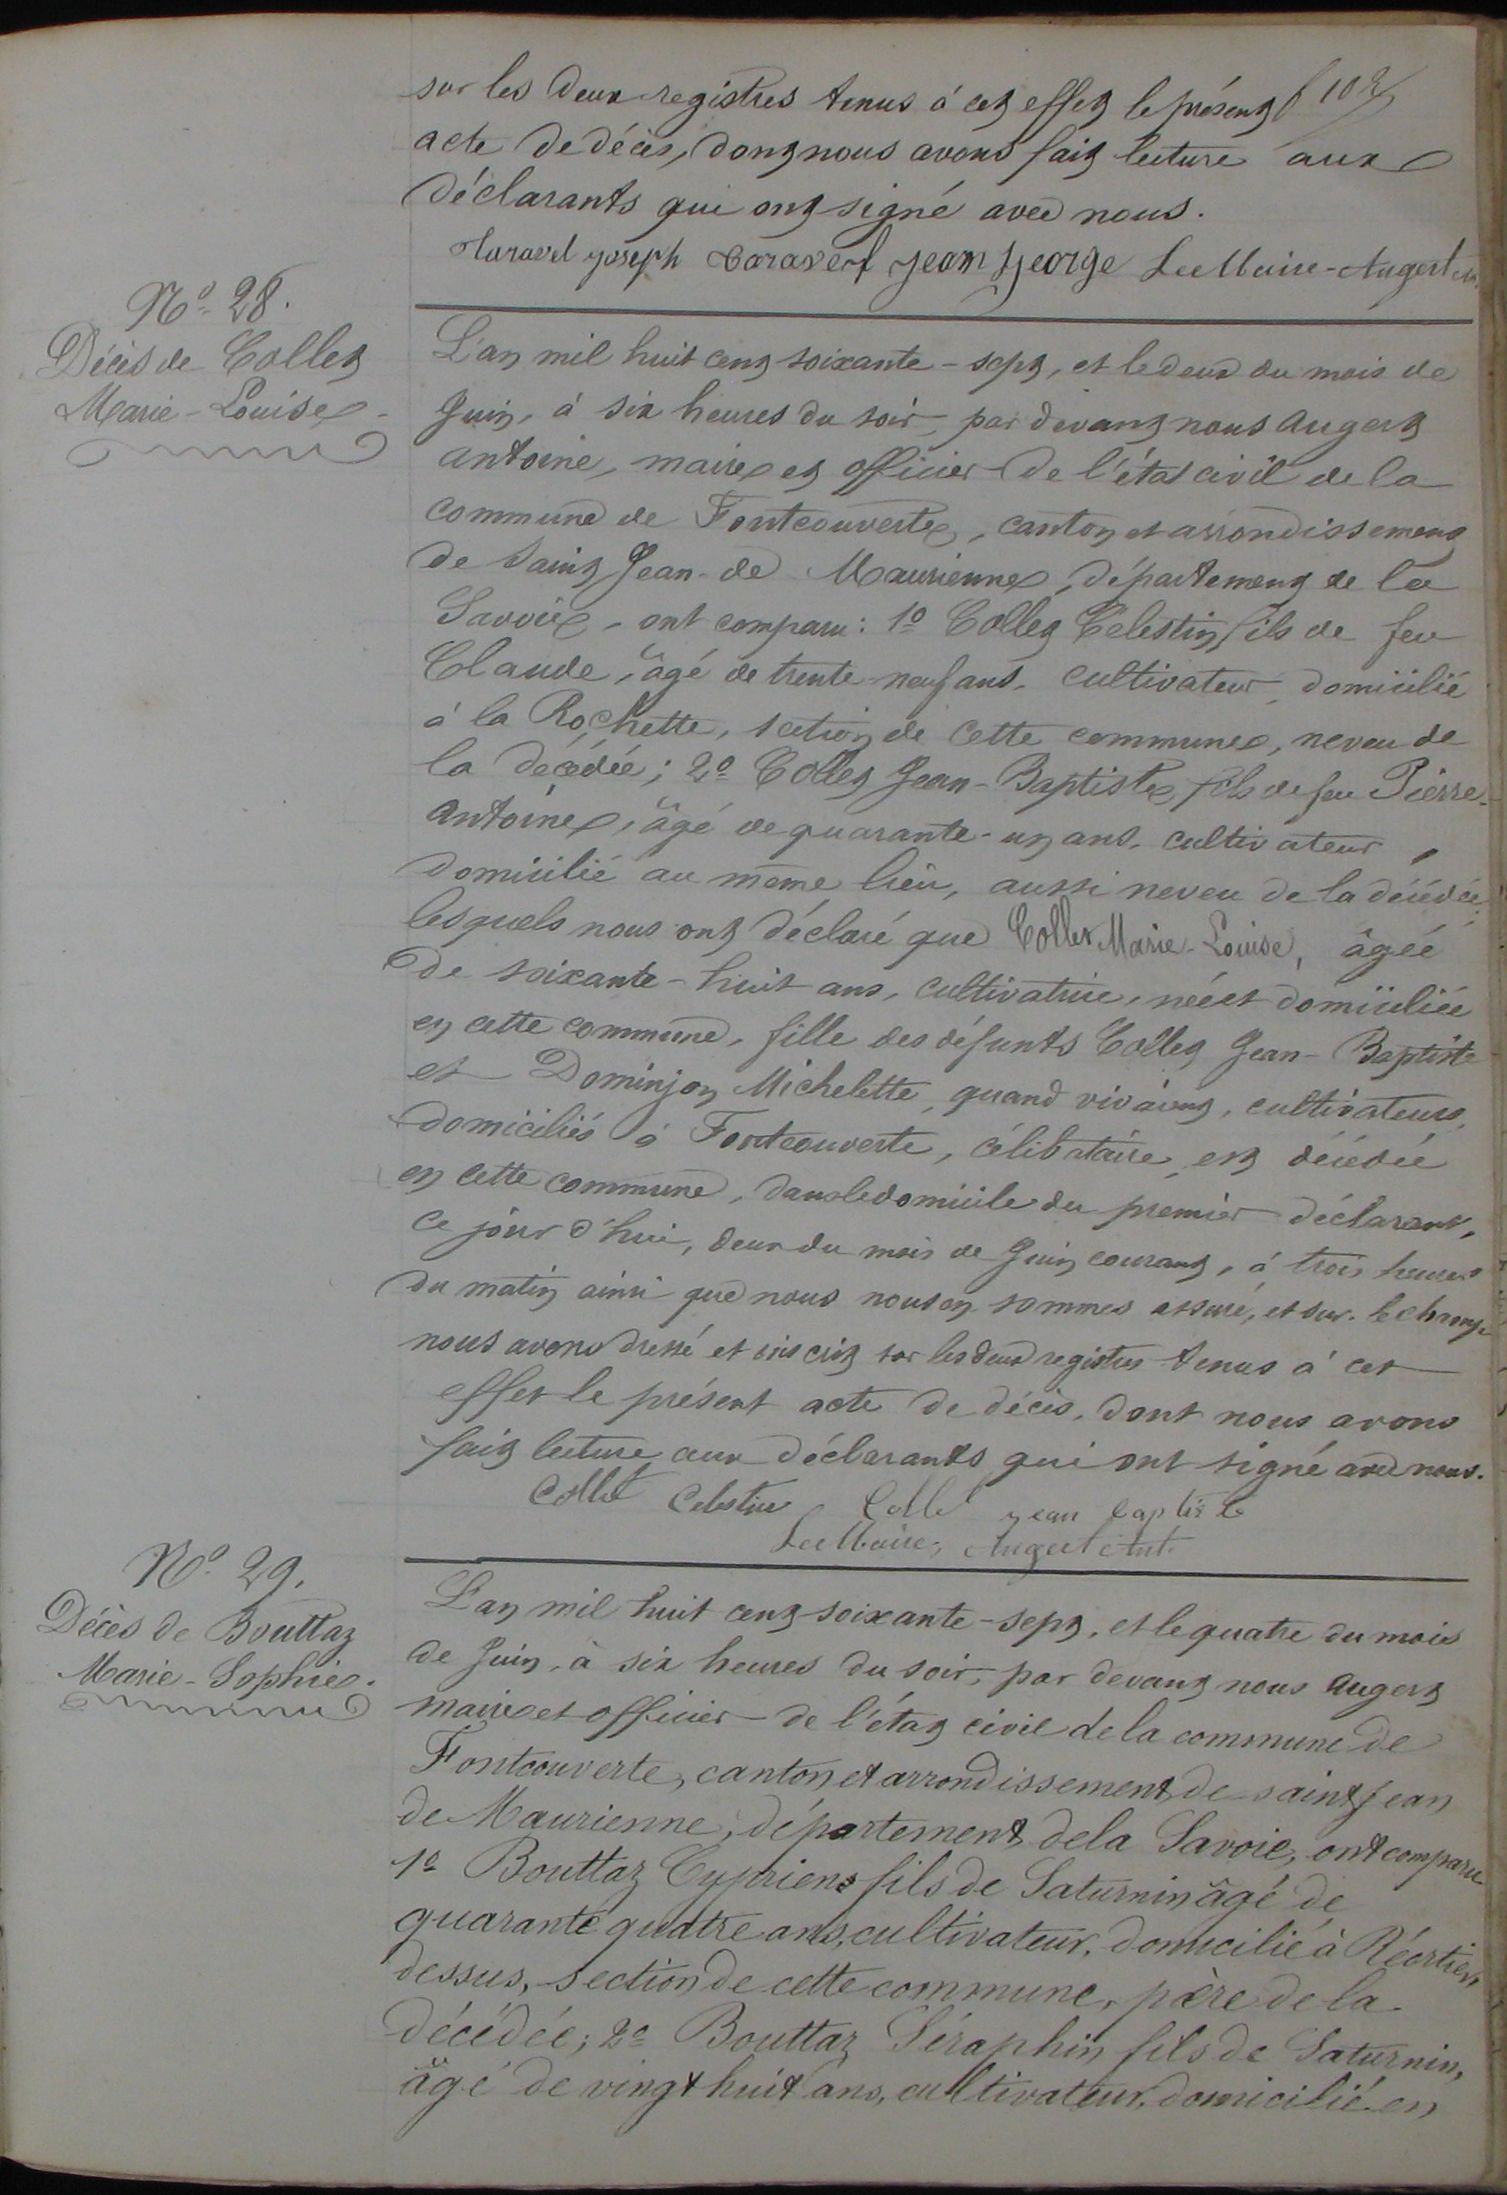 sur les deux registres tenus à cet effet le présent
acte de décès, dont nous avons fait lecture aux
déclarants qui ont signé avec nous.
joseph Caravel jean george Le Maire Augert
N° 28.
Décès de Collet
Marie-Louise
L'an mil huit cent soixante-sept, et le deux du mois de
Juin, à six heures du soir, par devant nous Augert
Antoine, maire et officier de l'état civil de la
commune de Fontcouverte, canton et arrondissement
de Saint Jean de Maurienne, département de la
Savoie, ont comparu: 1° Collet Celestin, fils de feu
Claude, âgé de trente-neuf ans, cultivateur, domicilié
à la Rochette, section de cette commune, neveu de
la décédée; 2° Collet Jean-Baptiste, fils de feu Pierre-
Antoine, âgé de quarante-un ans, cultivateur,
domicilié au même lieu, aussi neveu de la décédée;
lesquels nous ont déclaré que Collet Marie-Louise, âgée
de soixante-huit ans, cultivatrice, née et domiciliée
en cette commune, fille des défunts Collet Jean-Baptiste
et Dominjon Michelette, quand vivaient, cultivateurs,
domiciliés à Fontcouverte, célibataire, est décédée
en cette commune, dans le domicile du premier déclarant,
ce jour d'hui, deux du mois de Juin courant, à trois heures
du matin ainsi que nous nous en sommes assuré, et sur-le-champ
nous avons dressé et inscrit sur les deux registres tenus à cet
effet le présent acte de décès, dont nous avons
fait lecture aux déclarants qui ont signé avec nous.
Collet Celestin Collet jean baptiste
Le Maire, Augert Ant.
N° 29.
Décès de Bouttaz
Marie-Sophie.
L'an mil huit cent soixante-sept, et le quatre du mois
de Juin, à six heures du soir, par devant nous Augert
maire et officier de l'état civil de la commune de
Fontcouverte, canton et arrondissement de saint Jean
de Maurienne, département de la Savoie, ont comparu
1° Bouttaz Cyprien fils de Saturnin âgé de
quarante quatre ans, cultivateur, domicilié à Réortier
dessus, section de cette commune, père de la
décédée; 2° Bouttaz Séraphin fils de Saturnin,
âgé de vingt huit ans, cultivateur, domicilié en